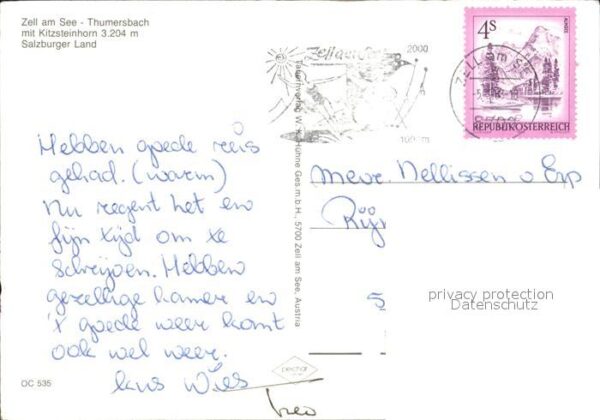 Zell am See - Thumersbach
mit Kitzsteinhorn 3.204 m
Salzburger Land
Hebben goede reis
gehad. (warm)
Nu regent het en
fijn tijd om te
schrijven. Hebben
gezellige kamer en
't goede weer komt
ook wel weer.
Wies
OC 535
Ges.m.b.H., 5700 Zell am See, Austria
Zell am See
2000
4S
REPUBLIK ÖSTERREICH
ZELL AM SEE
Mevr. Nellissen v Erp
Rijn
5
privacy protection
Datenschutz